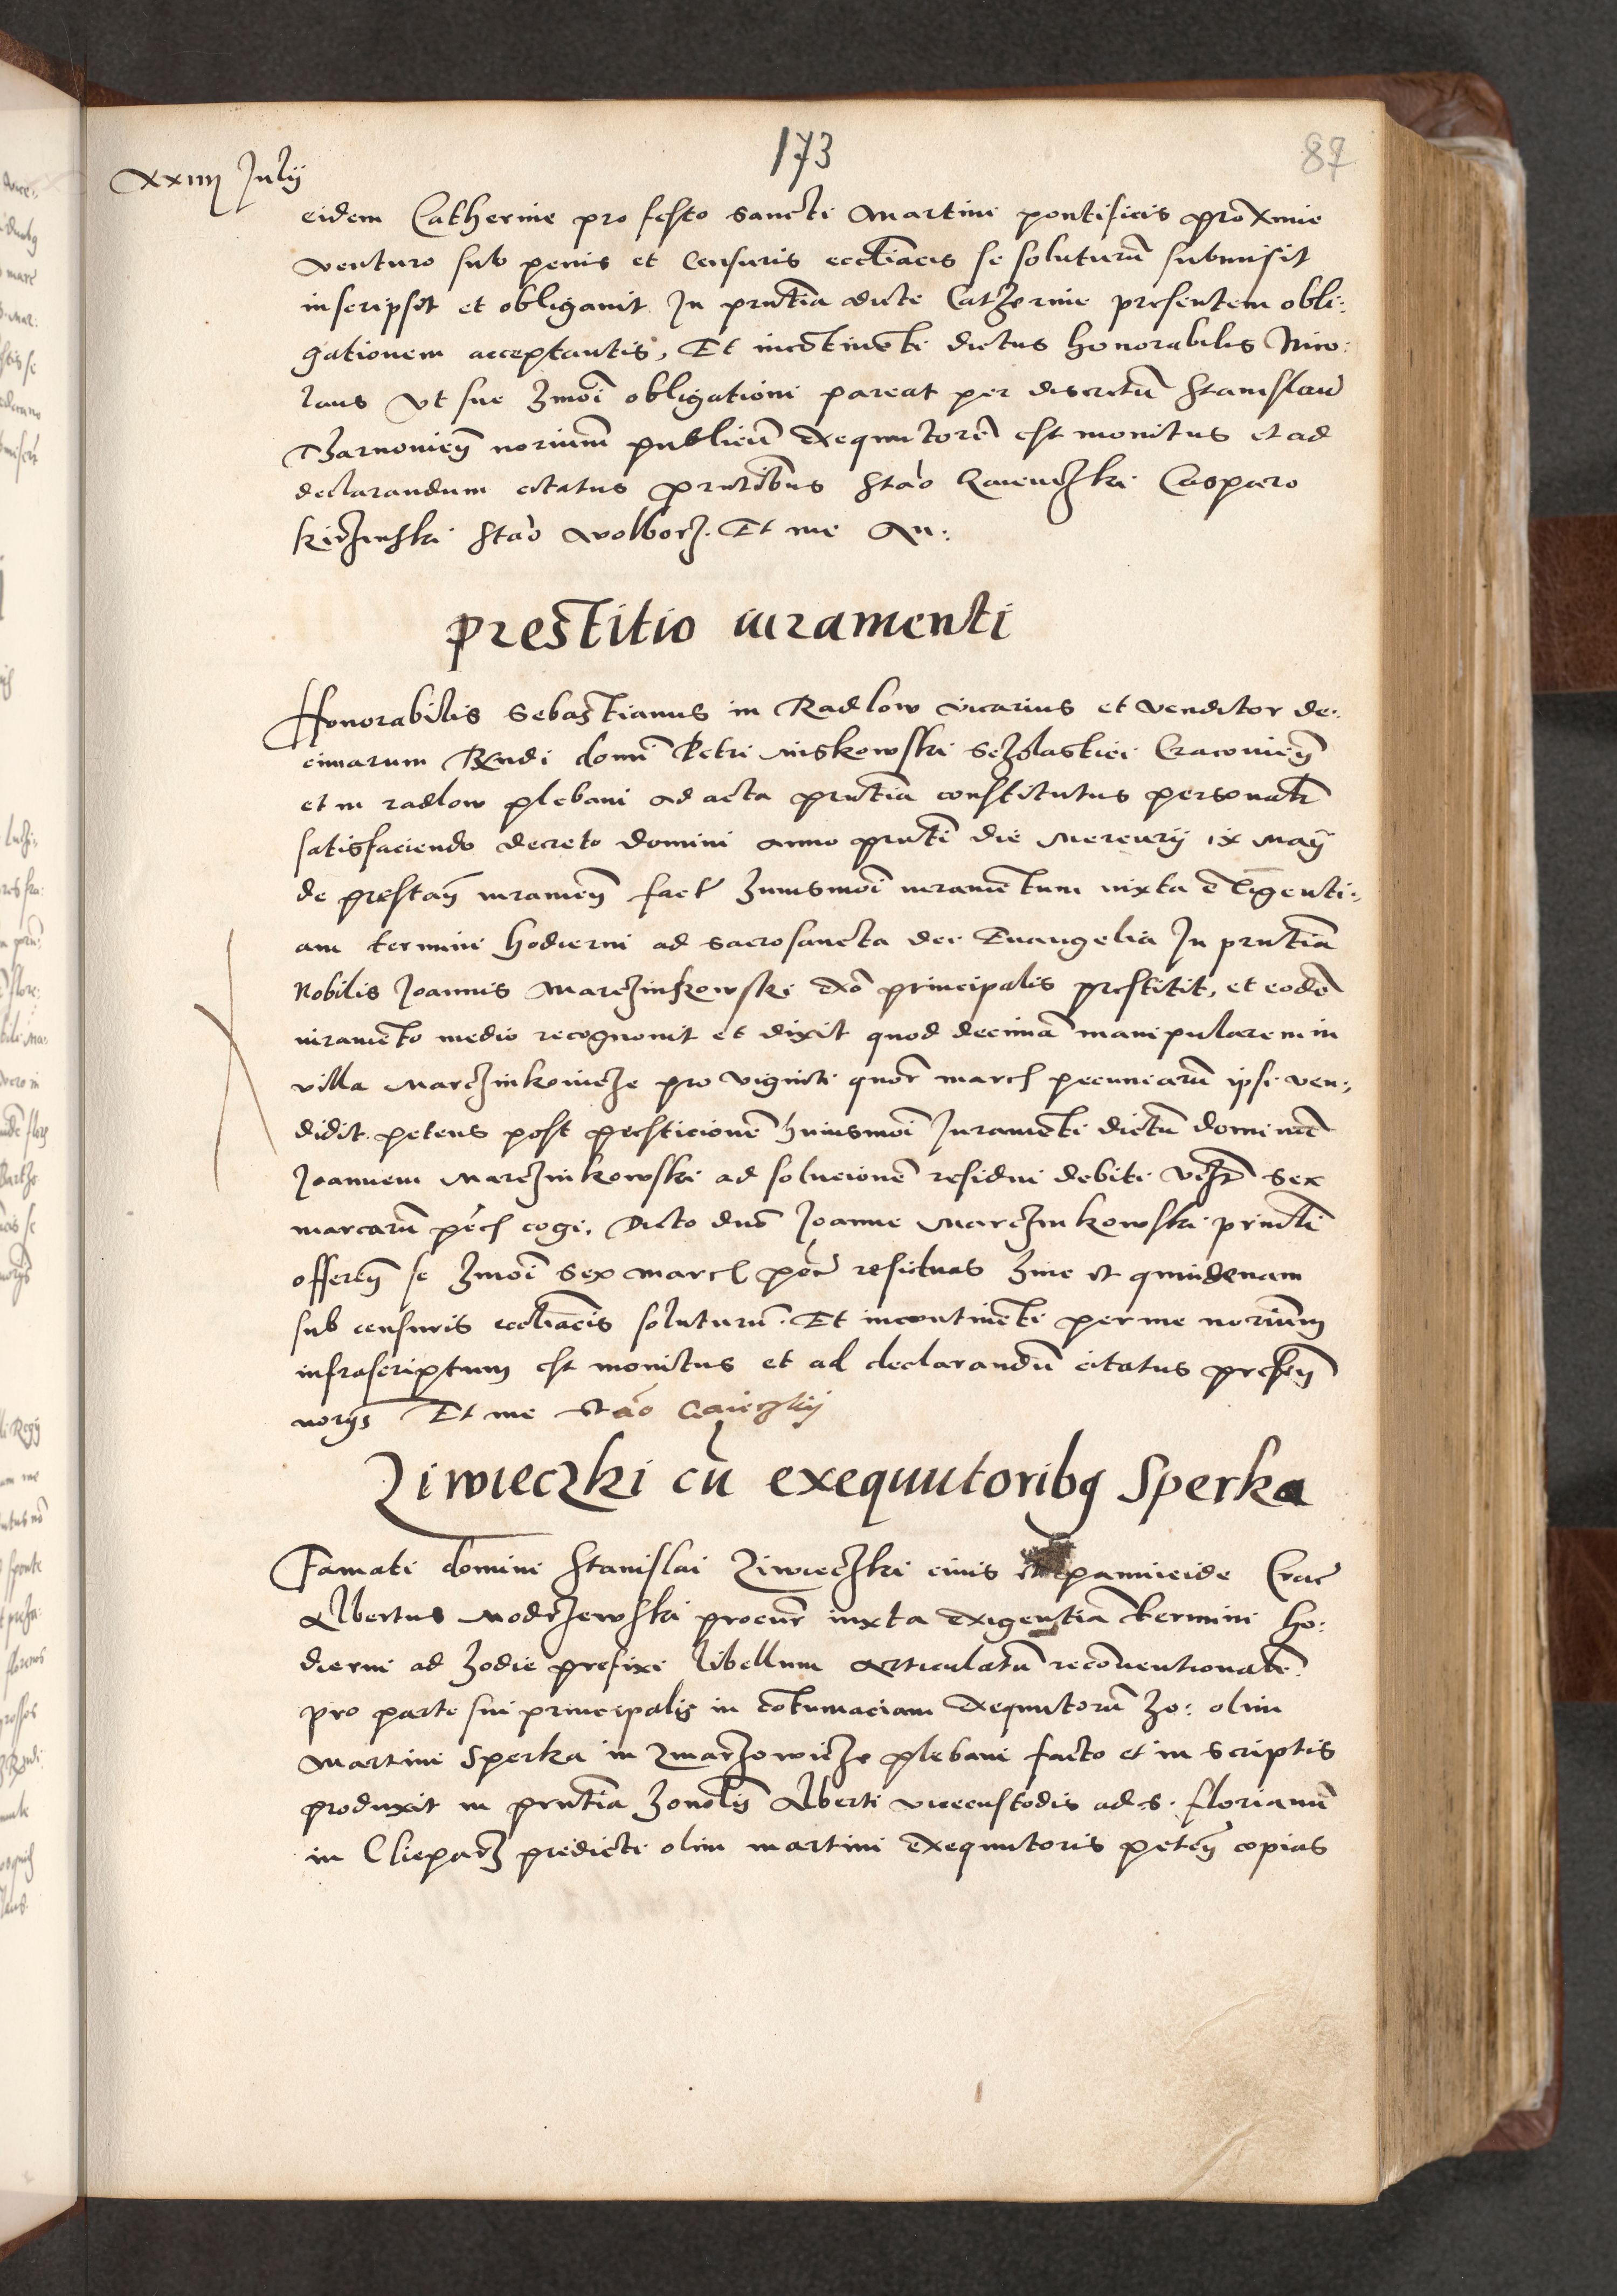 173
87
xxiiij Julij
eidem Catherine pro festo sancti Martini pontificis proxime
venturo sub penis et censuris eccliacis se soluturu submisit
inscripsit et obligauit In pntia dicte Catherine presentem obli:
gationem acceptantis, Et incotineti dictus honorabilis Nico:
laus vt sue hmoi obligationi pareat per discretu Stanislau
Tharnouien norium publicu exequutore est monitus et ad
declarandum citatus pntibus Stao Caspero
Stao Wolborz. Et me An:
Prestitio iuramenti
Honorabilis Sebastianus in Radlow vicarius et venditor de:
cimarum Rndi domi Petri Miskowski Scholastici Cracouien
et in radlow plebani ad acta pntia constitutus personalr
satisfaciendo decreto domini anno pnti die Mercurij ix Maij
de prestan iuramen fact huiusmoi iuramentum iuxta exigenti:
am termini hodierni ad sacrosancta dei Euangelia In pntia
Nobilis Joannis Marczinkowski exo principalis prestitit, et eode
iurameto medio recognouit et dixit quod decima manipularem in
villa Marczinkowicze pro viginti quor march pecuniaru ipsi ven:
didit. petens post presticione huiusmoi Juramenti dictu dominu
Joannem Marczinkowski ad solucione residui debiti videt sex
marcaru pec cogi. Dicto dno Joanne Marczinkowski pnti
offeren se hmoi sex march pec residuas hinc et quindenam
sub censuris eccliacis soluturu. Et incontineti per me norium
infrascriptum est monitus et ad declarandu citatus presen
norijs Et me Stao
Ziwieczki cu exequutoribq Sperka
Famati domini Stanislai Ziwieczki ciuis pannicide Crac
Albertus Modrzewski procur iuxta exigentia termini ho:
dierni ad hodie prefixi libellum articulatu reconuentionale
pro parte sui principalis in cotumaciam exequutoru ho: olim
Martini Sperka in Zmarzowicze plebani facto et in scriptis
produxit in pntia honolis Alberti vicecustodis ad s. florianu
in Cleparz predicti olim martini exequutoris peten copias